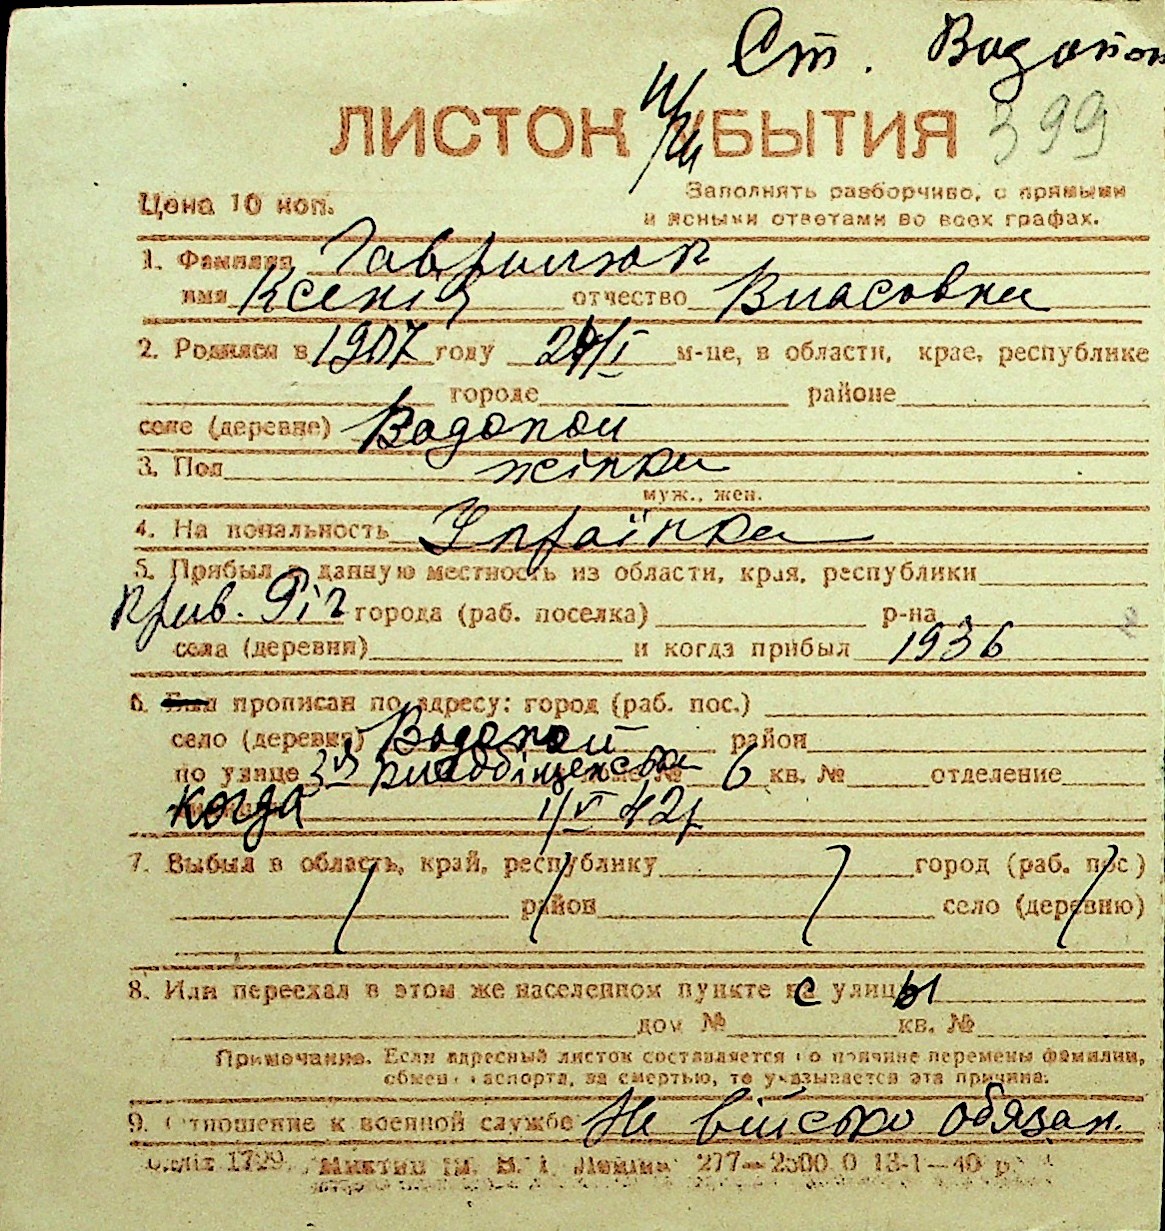 Ст. Водопой
ЛИСТОК УБЫТИЯ 399
Цена 10 коп.
Заполнять разборчиво, с прямыми
и ясными ответами во всех графах.
1. Фамилия Гаврилюк
имя Ксенія отчество Власовна
2. Родился в 1907 году 24/I м-це, в области, крае, республике
городе районе
селе (деревне) Водопой
3. Пол жінка
муж., жен.
4. Национальность Українка
5. Прибыл в данную местность из области, края, республики
Крив. Ріг города (раб. поселка) р-на
села (деревни) и когда прибыл 1936
6. Был прописан по адресу: город (раб. пос.)
село (деревня) Водопой район
по улице 3я № 6 кв. № отделение
когда 1/VI 42г
7. Выбыл в область, край, республику город (раб. пос.)
район село (деревню)
8. Или переехал в этом же населенном пункте с улицы
дом № кв. №
Примечание. Если адресный листок составляется по причине перемены фамилии,
обмена паспорта, за смертью, то указывается эта причина.
9. Отношение к военной службе Не військо обязан.
1799. 277—2500 0 13-1—40 р.